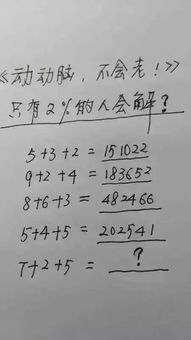 《动动脑，不会老！》
只有2%的人会解？
5+3+2 = 151022
9+2+4 = 183652
8+6+3 = 482466
5+4+5 = 202541
7+2+5 = ?